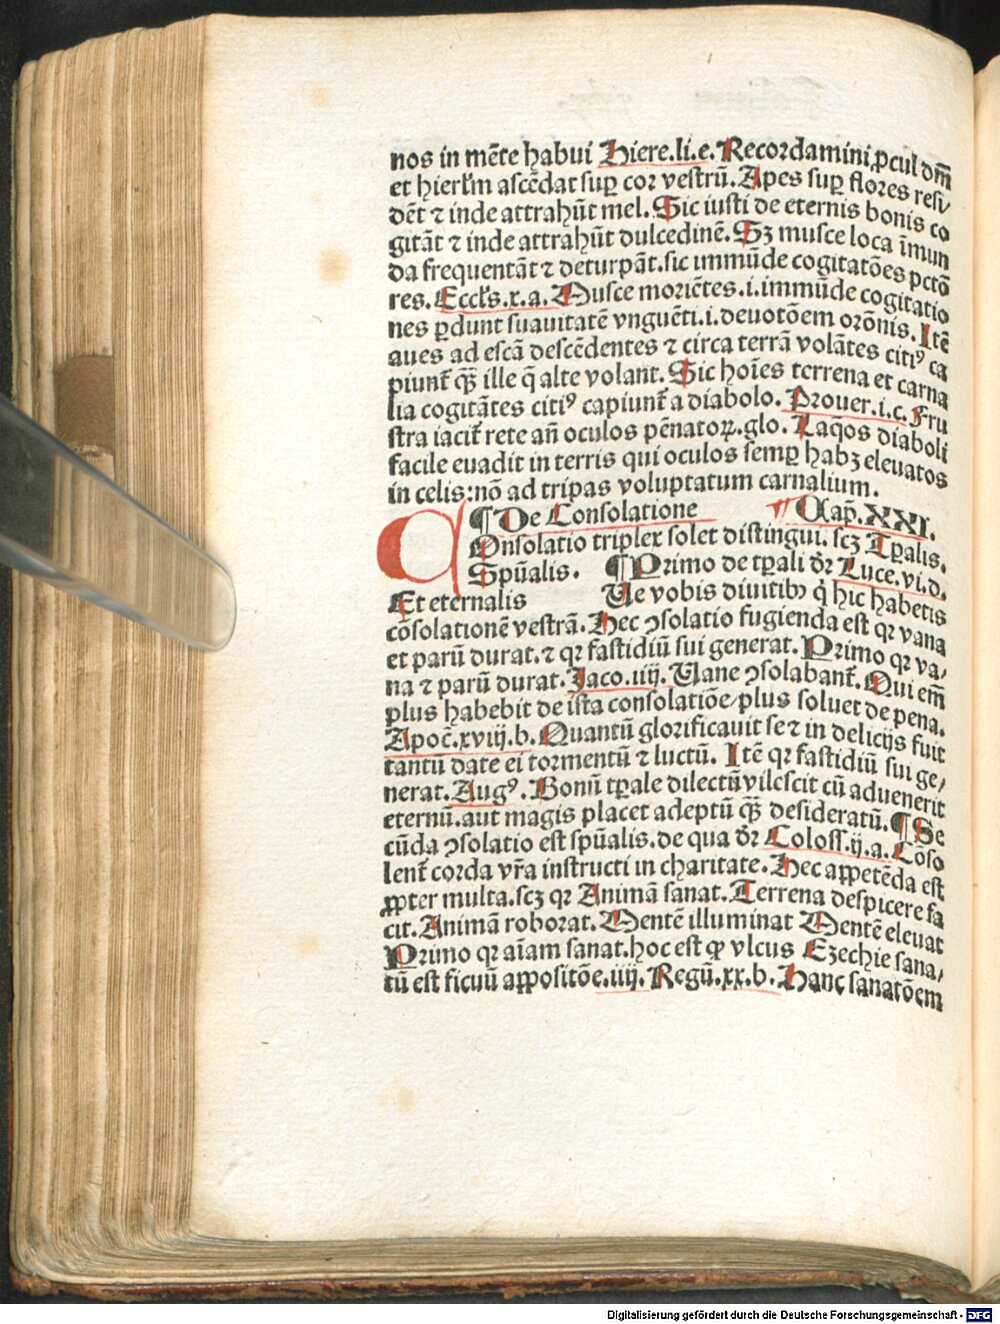 nos in mẽte habui Hiere.li.e. Recordamini ꝓcul dm̃
et hierl̃m ascẽdat suꝑ cor vestrũ. Apes suꝑ flores resi/
dẽt ⁊ inde attrahũt mel. Sic iusti de eternis bonis co
gitãt ⁊ inde attrahũt dulcedinẽ. Sꝫ musce loca ĩmun
da frequentãt ⁊ deturpãt. sic immũde cogitatões pctõ
res. Eccl̃s.x.a. Musce moriẽtes .i. immũde cogitatio
nes ꝑdunt suauitatẽ vnguẽti .i. deuotõem orõnis. Itẽ
aues ad escã descẽdentes ⁊ circa terrã volãtes citiꝰ ca
piunt̃ qꝫ̃ ille q̃ alte volant. Sic hoĩes terrena et carna
lia cogitãtes citiꝰ capiunt̃ a diabolo. Prouer.i.c. Fru
stra iacit̃ rete añ oculos pẽnatoꝝ. glo. Laq̃os diaboli
facile euadit in terris qui oculos semꝑ habꝫ eleuatos
in celis: nõ ad tripas voluptatum carnalium.
¶ De Consolatione ¶ Cap̃. XXI.
COnsolatio triplex solet distingui. scꝫ Tꝑalis.
Spũalis. ¶ Primo de tꝑali dr̃ Luce.vi.d.
Et eternalis Ue vobis diuitibꝫ q̇ hic habetis
cõsolationẽ vestrã. Hec ꝯsolatio fugienda est qꝛ vana
et parũ durat. ⁊ qꝛ fastidiũ sui generat. Primo qꝛ va/
na ⁊ parũ durat. Jaco.iiij. Uane ꝯsolabant̃. Qui em̃
plus habebit de ista consolatiõe/ plus soluet de pena.
Apoc̃.xviij.b. Quantũ glorificauit se ⁊ in delicijs fuit
tantũ date ei tormentũ ⁊ luctũ. Itẽ qꝛ fastidiũ sui ge/
nerat. Augꝰ. Bonũ tꝑale dilectũ vilescit cũ aduenerit
eternũ. aut magis placet adeptũ qꝫ̃ desideratũ. ¶ Se
cũda ꝯsolatio est spũalis. de qua dr̃ Coloss.ij.a. Cõso
lent̃ corda vr̃a instructi in charitate. Hec appetẽda est
ꝓpter multa. scꝫ qꝛ Animã sanat. Terrena despicere fa
cit. Animã roborat. Mentẽ illuminat Mentẽ eleuat
Primo qꝛ aĩam sanat. hoc est ꝙ vlcus Ezechie sana/
tũ est ficuũ appositõe. iiij. Regũ.xx.b. Hanc sanatõem
Digitalisierung gefördert durch die Deutsche Forschungsgemeinschaft - DFG